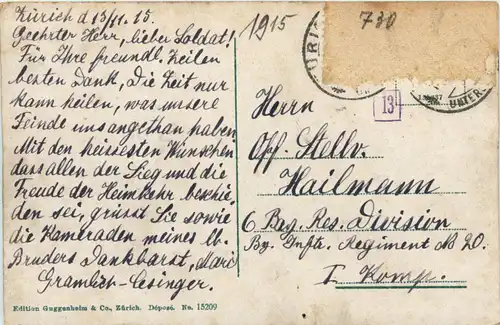 Zürich d 13/11. 15.
Geehrter Herr, lieber Soldat!
Für Ihre freundl. Zeilen
besten Dank, Die Zeit nur
kann heilen, was unsere
Feinde uns angethan haben
Mit den heissesten Wünschen
dass allen der Sieg und die
Freude der Heimkehr beschie,
den sei, grüsst Sie sowie
die Kameraden meines lb.
Bruders Dankbarst, Marie
Gramlich-Cesinger.
1915
730
ZÜRI
13
UNTER
Herrn
Off. Stellv.
Hailmann
6 Bay. Res. Division
By. Inftr. Regiment № 20.
I. Komp.
Edition Guggenheim & Co., Zürich. Déposé. No. 15209